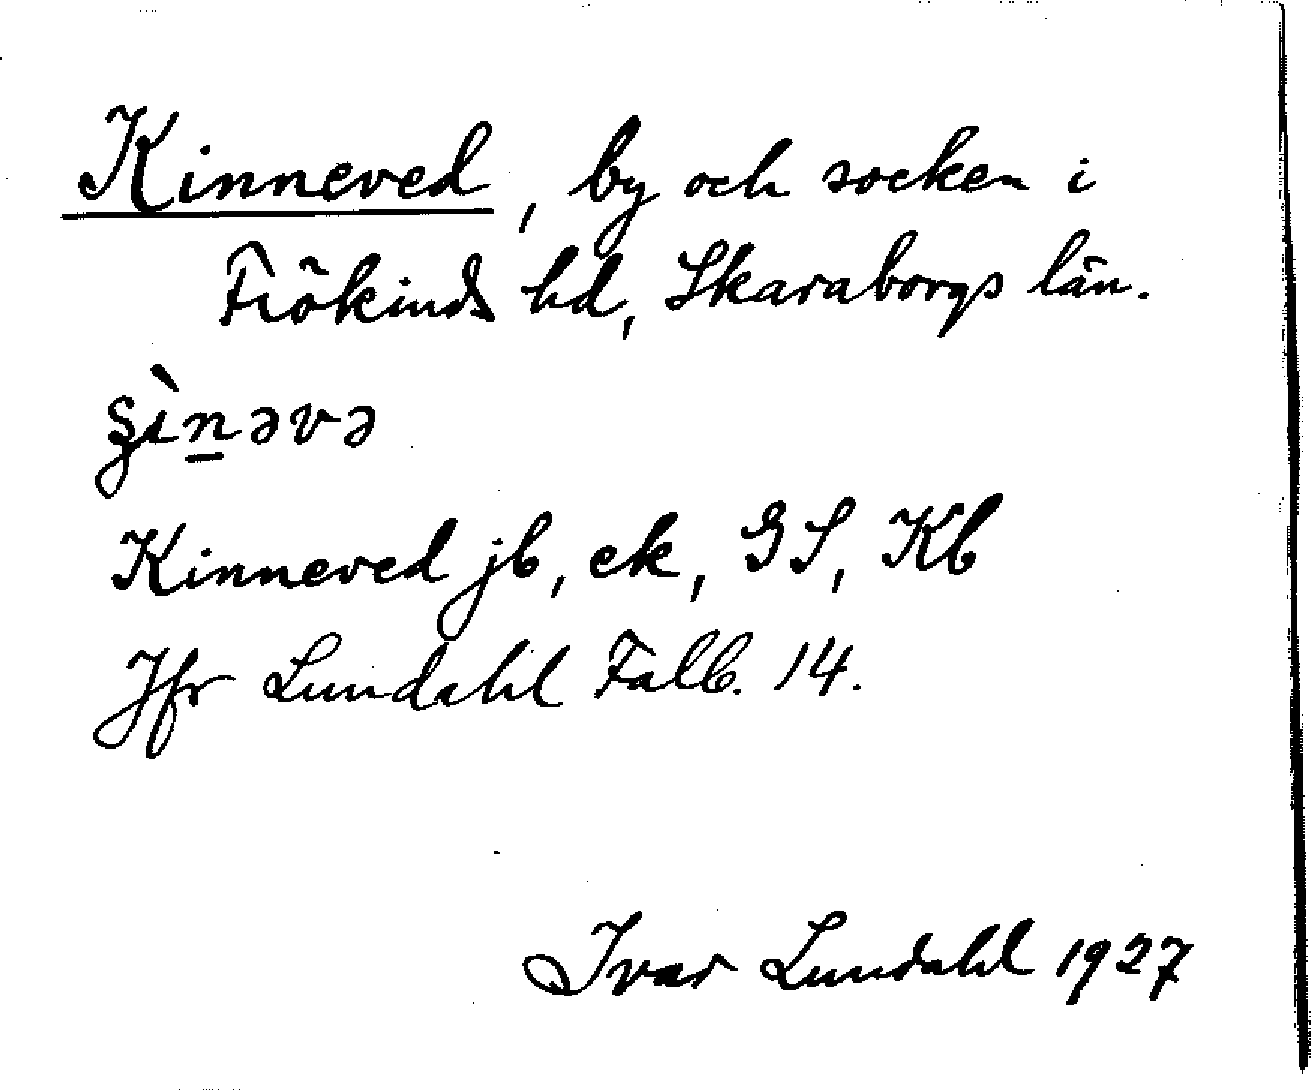 Kinneved, by och socken i
Frökinds hd, Skaraborgs län.
Kinneved jb, ek, GS, Kb
Jfr Lundahl Falb. 14.
Ivar Lundahl 1927